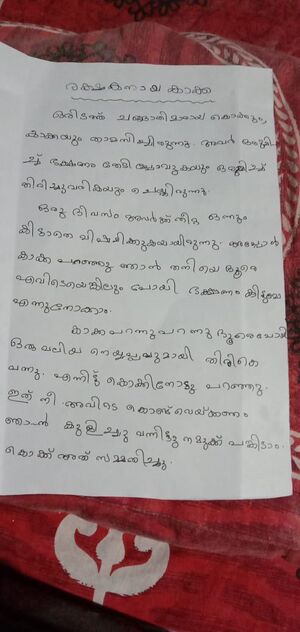 രക്ഷകനായ കാക്ക
ഒരിടത്ത് ചങ്ങാതിമാരായ കൊക്കും
കാക്കയും താമസിച്ചിരുന്നു. അവർ ഒരുമി-
ച്ച് ഭക്ഷണം തേടി പോവുകയും ഒരുമിച്ച്
തിരിച്ചുവരികയും ചെയ്തിരുന്നു.
ഒരു ദിവസം അവർക്ക് തീറ്റ ഒന്നും
കിട്ടാതെ വിഷമിക്കുകയായിരുന്നു. അപ്പോൾ
കാക്ക പറഞ്ഞു ഞാൻ തനിയെ ദൂരെ
എവിടെയെങ്കിലും പോയി ഭക്ഷണം കിട്ടുമോ
എന്നുനോക്കാം.
കാക്ക പറന്നു പറന്നു ദൂരെപോയി
ഒരു വലിയ നെയ്യപ്പവുമായി തിരികെ
വന്നു. എന്നിട്ട് കൊക്കിനോടു പറഞ്ഞു.
ഇത് നീ അവിടെ കൊണ്ട് വെയ്ക്കണം
ഞാൻ കുളിച്ചു വന്നിട്ടു നമുക്ക് പങ്കിടാം.
കൊക്ക് അത് സമ്മതിച്ചു.